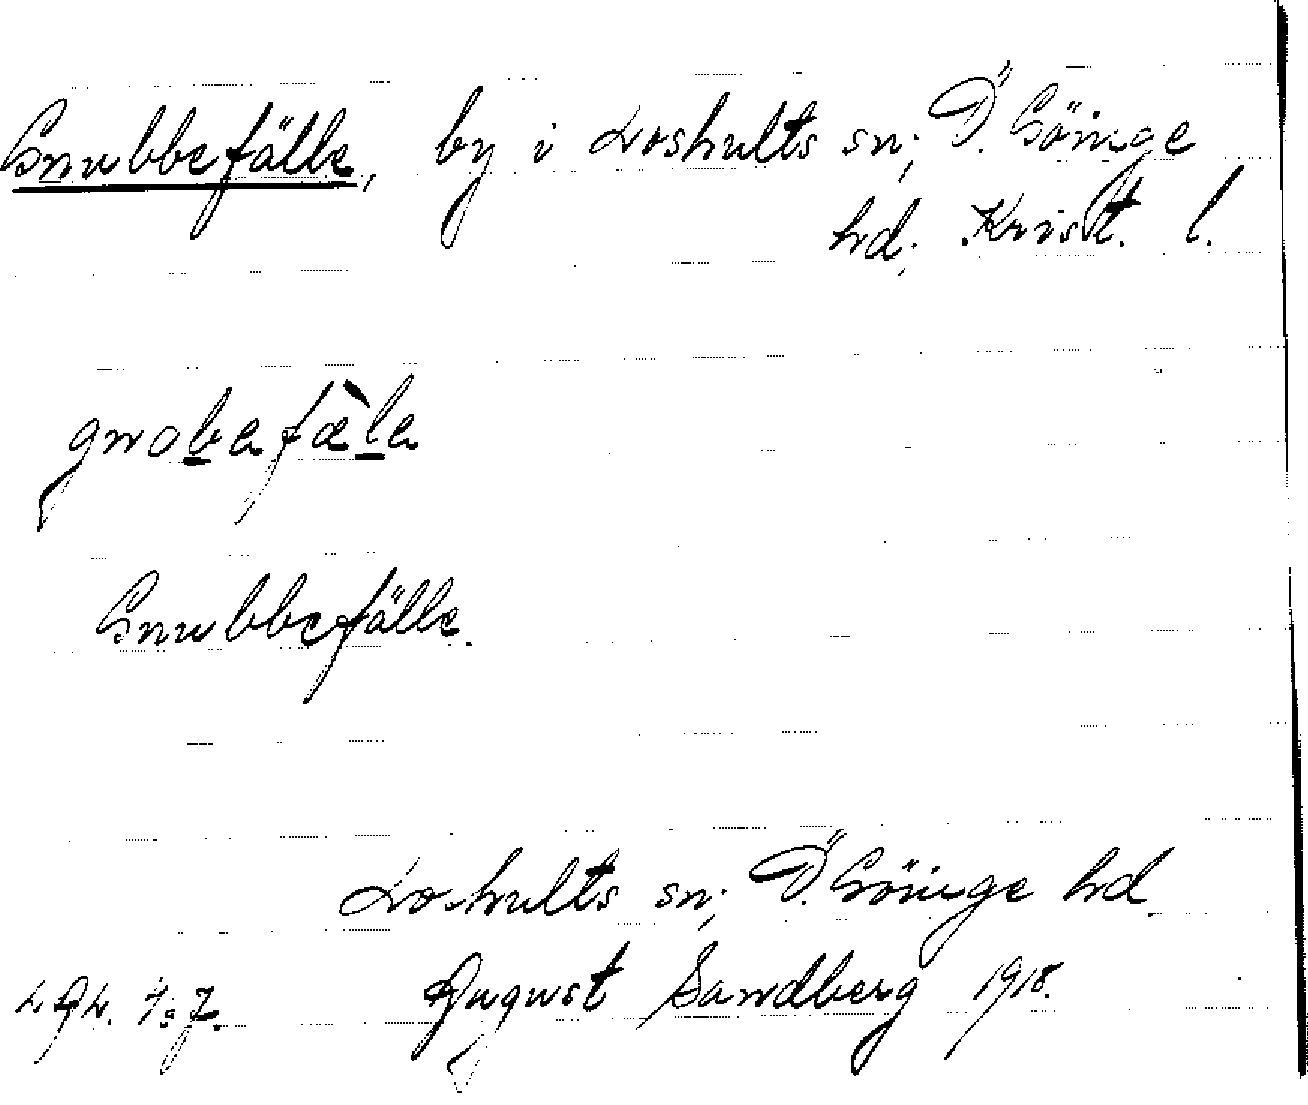 Gnubbefälle, by i Loshults sn; Ö. Göinge
hd; Krist. l.
gnobafäla
Gnubbefälle.
Loshults sn; Ö. Göinge hd.
August Sandberg 1918.